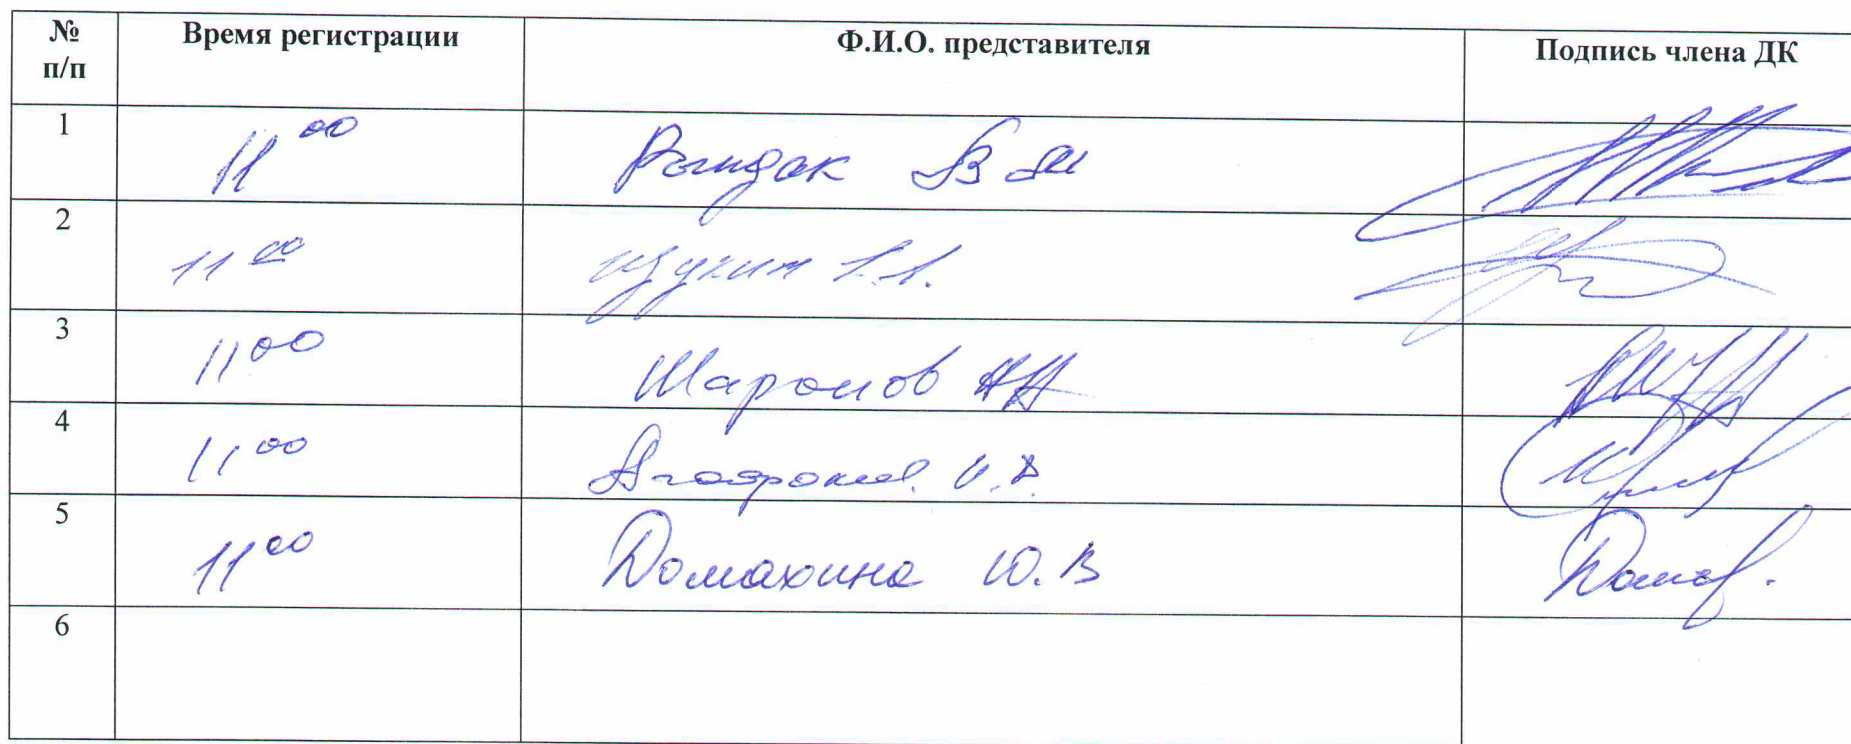 № п/п Время регистрации Ф.И.О. представителя Подпись члена ДК
1 11 00 Рындак В М
2 11 00 Щукин
3 11 00 Шаронов АА
4 11 00 И.В.
5 11 00 Домахина Ю.В
6